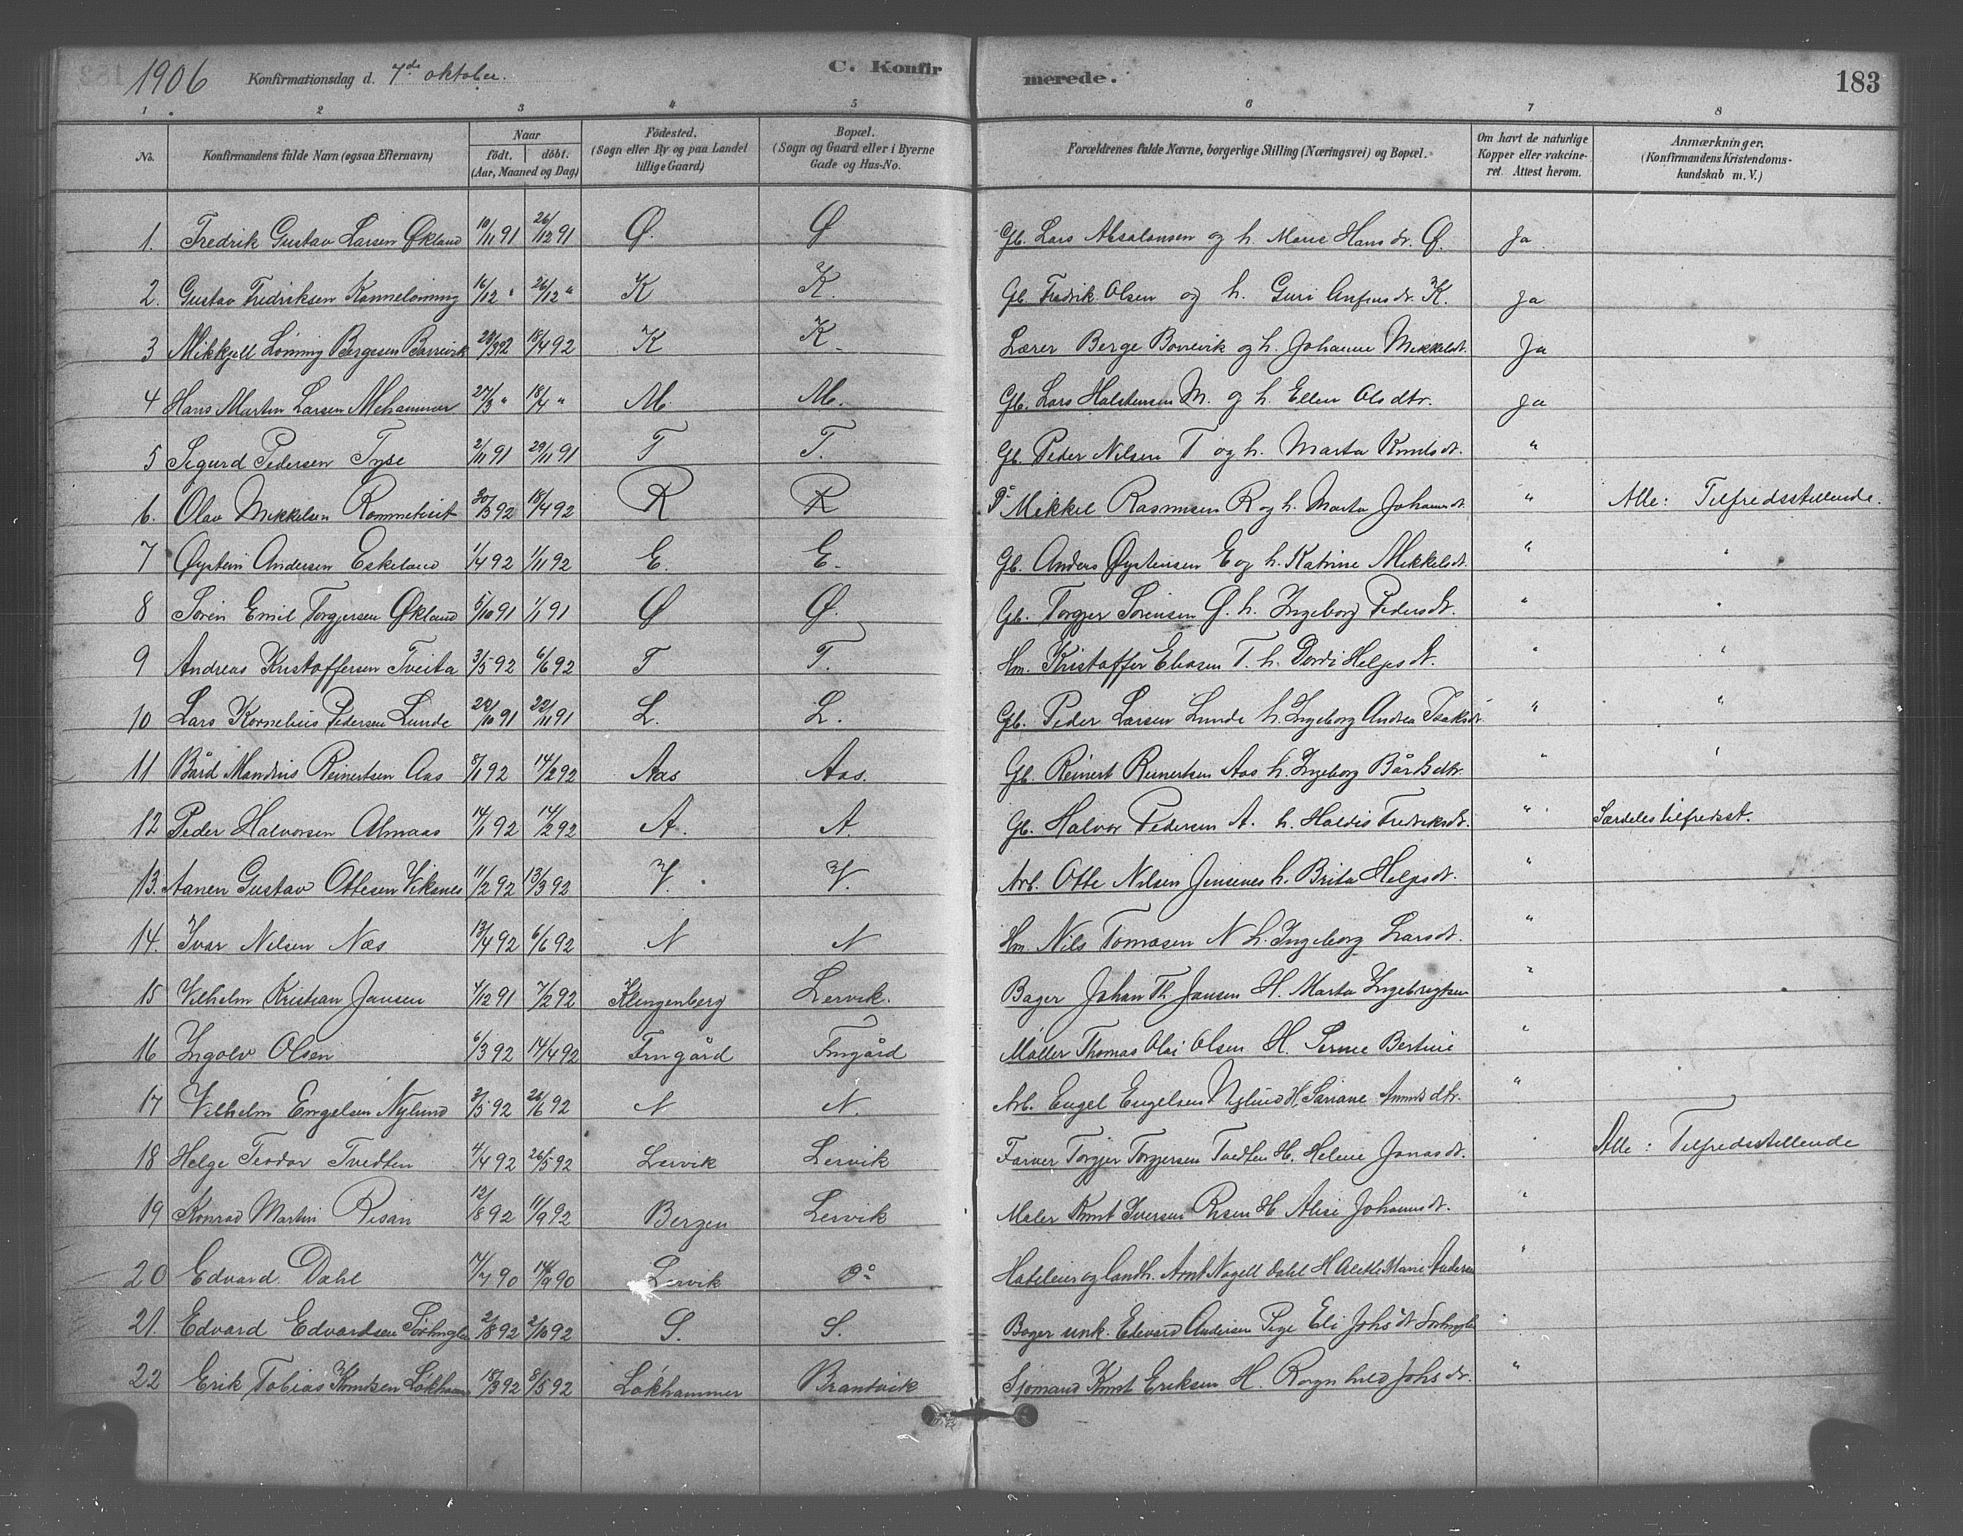 1906 Konfirmationsdag d. 7de oktober. C. Konfirmerede. 183
1 2 3 4 5 6 7 8
No. Konfirmandens fulde Navn (ogsaa Efternavn) Naar födt. döbt. (Aar, Maaned og Dag) Födested. (Sogn eller By og paa Landet tillige Gaard) Bopæl. (Sogn og Gaard eller i Byerne Gade og Hus-No. Forældrenes fulde Navne, borgerlige Stilling (Næringsvei) og Bopæl. Om havt de naturlige Kopper eller vakcineret. Attest herom. Anmærkninger. (Konfirmandens Kristendomskundskab m. V.)
1. Fredrik Gustav Larsen Økland 10/11 91 26/12 91 Ø. Ø Gb. Lars Absalonsen og h. Marie Hansdr. Ø. Ja
2. Gustav Fredriksen Kanneløning 16/12 " 26/12 " K K. Gb. Fredrik Olsen og h. Guri Anfinsdr. K. Ja
3 Mikkjell Lønning Bergesen Bovreivik 18/4 92 K K Lærer Berge Borrevik og h. Johanne Mikkelsdt. Ja
4 Hans Martin Larsen Mehammer 27/3 " 18/4 " M. M. Gb. Lars Halstensen M. og h. Ellen Olsdtr. Ja
5 Sigurd Pedersen Tyse 2/11 91 29/11 91 T T. Gb. Peder Nilsen T og h. Marta Knudsdt. "
6. Olav Mikkelsen Rommetveit 30/3 92 18/4 92 R R Mikkel Rasmusen R og h. Marta Johannsdt. " Alle: Tilfredsstillende.
7 Øystein Andersen Eskeland 1/4 92 E. E. Gb. Anders Øystensen E og h. Katrine Mikkelsdt. " "
8 Søren Emil Torgjersen Økland 5/10 91 1/1 91 Ø Ø. Gb. Torgjer Sørensen Ø. h. Ingeborg Pedersdt. " "
9 Andreas Kristoffersen Tveita 3/5 92 6/6 92 T T. Hm. Kristoffer Eliasen T. h. Dordi Helgesdt. " "
10 Lars Kornelius Pedersen Lunde 91 22/11 91 L. L. Gb. Peder Larsen Lunde h. Ingeborg Andrea Isaksdt. " "
11 Bård Mandius Reinertsen Aas 8/1 92 14/2 92 Aas Aas. Gb. Reinert Reinertsen Aas h. Ingeborg Bårdsdtr. " "
12 Peder Halvorsen Almaas 14/1 92 14/2 92 A. A. Gb. Halvor Pedersen A. h. Haldis Fredriksdt. " Særdeles tilfredsst.
13. Aanen Gustav Ottesen Viksnes 11/2 92 13/3 92 V. V. Arb. Otte Nilsen h. Brita Helgesdt. "
14. Ivar Nilsen Næs 13/4 92 6/6 92 N N Hm. Nils Tomasen N h. Ingeborg Larsdt. "
15 Vilhelm Kristian Jansen 7/12 91 7/2 92 Klingenberg Lervik. Bager Johan Th. Jansen H. Marta Ingebrigtsen "
16 Ingolv Olsen 6/3 92 14/4 92 Frugård Frugård Møller Thomas Olai Olsen H. Bertine "
17 Vilhelm Engelsen Nylund 3/5 92 26/6 92 N N. Arb. Engel Engelsen Nylund H. "
18 Helge Teodor Tvedten 4/4 92 26/5 92 Lervik Lervik Farver Torgjer Torgjersen Tvedten H. Helene Jonasdt. " Alle: Tilfredsstillende
19 Konrad Martin Risan 12/8 92 11/9 92 Bergen Lervik Maler Knut Iversen H Alise Johannsdt. "
20 Edvard Dahl 14/7 90 14/9 90 Lervik Do Hoteleier og landh. Arnt Nagell Dahl H Marie "
21. Edvard Edvardsen Sørhuglen 2/8 92 2/10 92 S. S. Bager unk. Edevard Andersen Pige Eli Johsdt Sørhuglen "
22 Erik Tobias Knutsen Løkhammer 18/3 92 8/5 92 Løkhammer Brandvik Sjømand Knut Eriksen H. Rognhild Johsdr. "